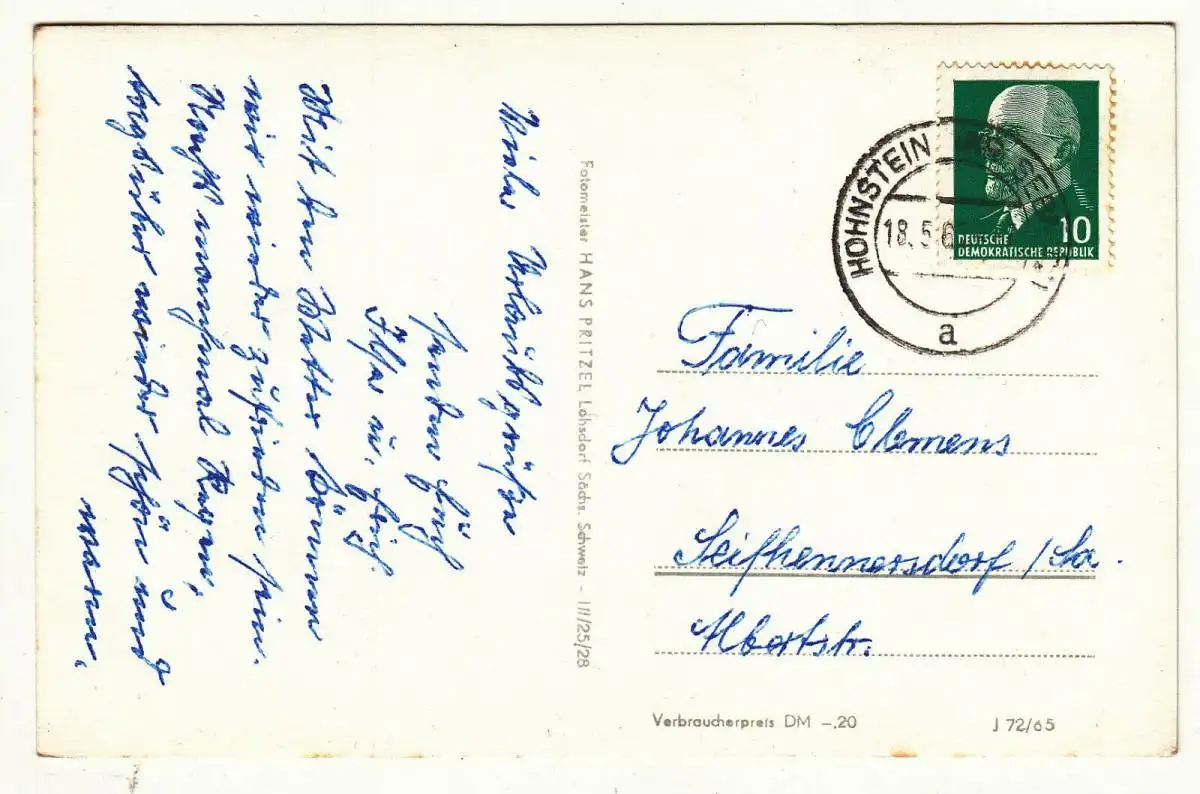 Viele Urlaubsgrüße
senden Euch
Ilse u.
Mit dem Wetter können
wir wieder zufrieden sein.
Nachts manchmal Regen,
tagsüber wieder schön und
warm.
Fotomeister HANS PRITZEL Lohsdorf Sächs. Schweiz - III/25/28
HOHNSTEIN
18.5.6
a
10
DEUTSCHE
DEMOKRATISCHE REPUBLIK
Familie
Johannes Clemens
Seifhennersdorf / Sa.
Albertstr.
Verbraucherpreis DM -.20
J 72/65